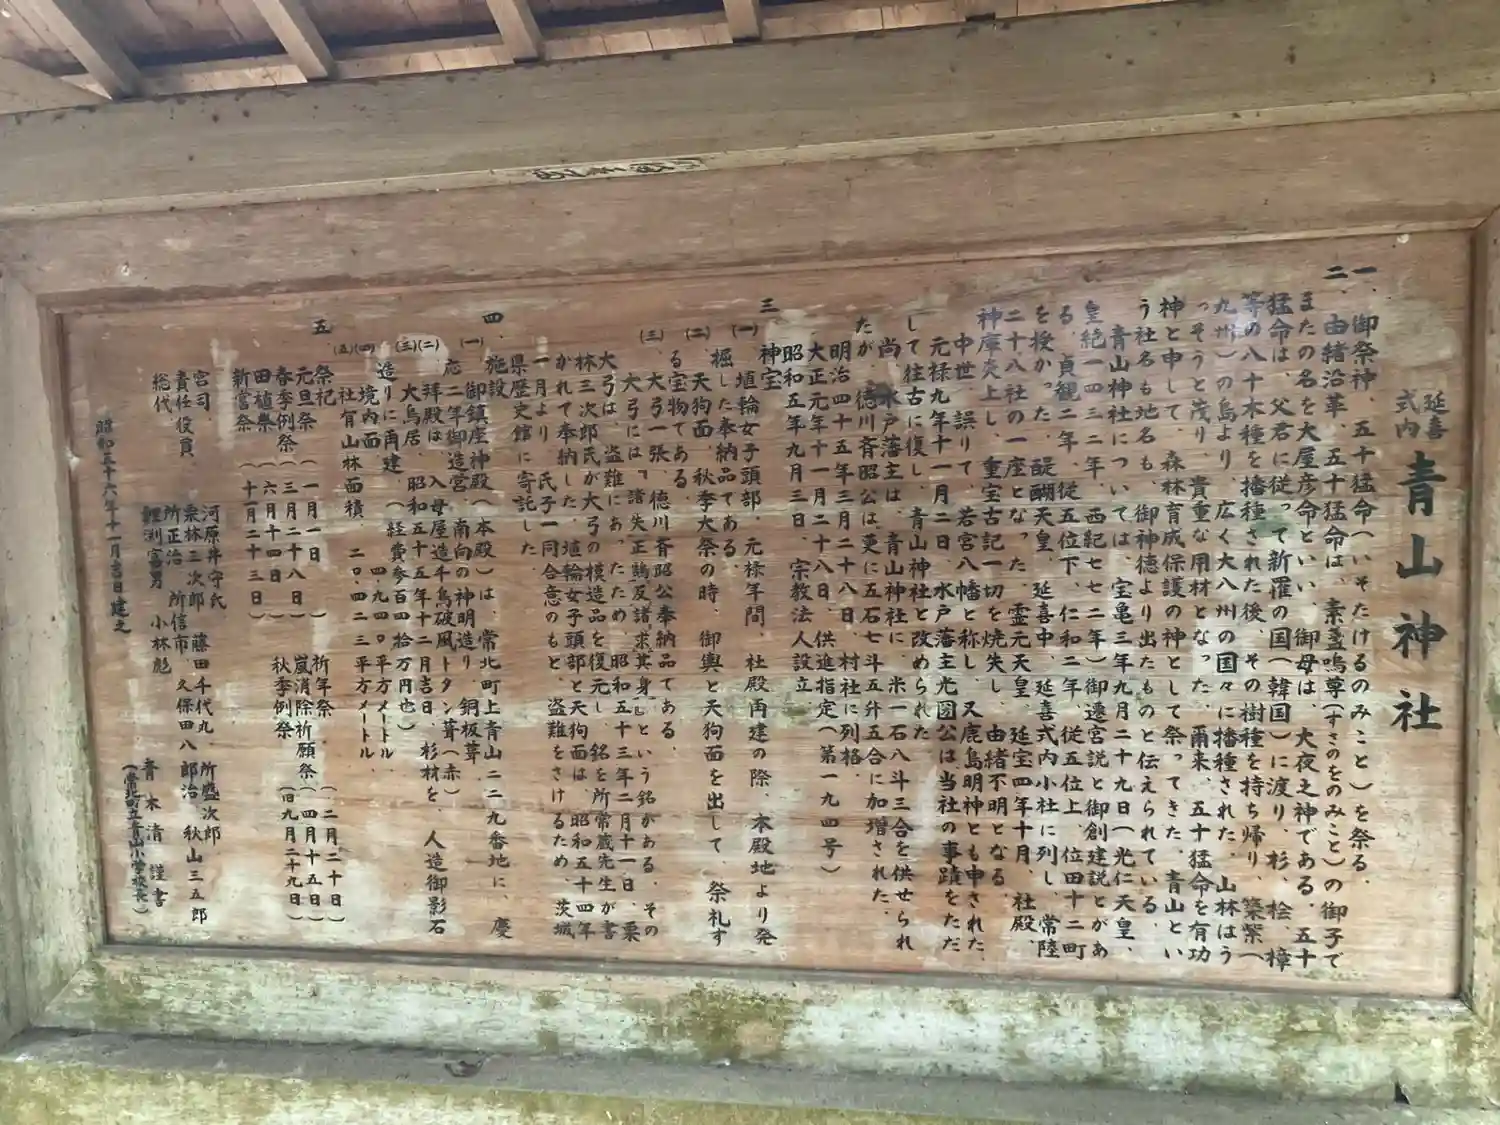 延喜式内 青山神社
一、御祭神、五十猛命(いそたけるのみこと)を祭る。
二、由緒沿革、五十猛命は、素盞嗚尊(すさのをのみこと)の御子で
またの名を大屋彦命といい、御母は、大夜之神である。五十
猛命は、父君に従って新羅の国(韓国)に渡り、杉、桧、樟
等の八十木種を播種された後、その樹種を持ち帰り、築紫(
九州)の島より、広く大八州の国々に播種された。山林はう
っそうと茂り、貴重な用材となった。爾来、五十猛命を有功
神と申して、森林育成保護の神として祭ってきた。青山とい
う社名も地名も、御神徳より出たものと伝えられている。
青山神社については、宝亀三年九月二十九日(光仁天皇、
皇紀一四三二年、西紀七七二年)御遷宮説と御創建説とがあ
る。貞観二年、従五位下、仁和二年、従五位上、位田十二町
を授かった。醍醐天皇、延喜中、延喜式内小社に列し、常陸
二十八社の一座となった。霊元天皇、延宝四年十月、社殿、
神庫炎上し、重宝古記一切を焼失し、由緒不明となる。
中世、誤りて、若宮八幡と称し、又鹿島明神とも申された。
元禄九年十一月二日、水戸藩主光圀公は、当社の事蹟をただ
して往古に復し、青山神社と改められた
尚、水戸藩主は、青山神社に、米一石八斗三合を供せられ
たが、徳川斉昭公は更に五石七斗五升五合に加増された。
明治四十五年三月二十八日、村社に列格。
大正元年十一月二十八日、供進指定(第一九四号)
昭和五年九月三日、宗教法人設立。
三、神宝
(一)埴輪女子頭部、元禄年間、社殿再建の際、本殿地より発
掘した奉納品である。
(二)天狗面、秋季大祭の時、御輿と天狗面を出して、祭礼す
る宝物である。
(三)大弓一張、徳川斉昭公奉納品である。
大弓には、『諸失正鵠反諸求其身』という銘がある。その
大弓は、盗難にあったため、昭和五十三年二月十一日、栗
林三次郎氏が大弓の模造品を復元し、銘を所常蔵先生が書
かれて奉納した。埴輪女子頭部と天狗面は、昭和五十四年
一月より、氏子一同合意のもと、盗難をさけるため、茨城
県歴史館に寄託した。
四、施設
(一)御鎮座神殿(本殿)は、常北町上青山二二九番地に、慶
応二年御造営、南向の神明造り、銅板葺、
(二)拝殿は、入母屋造千鳥破風トタン葺(赤)
(三)大鳥居、昭和五十五年十二月吉日、杉材を、人造御影石
造りに再建、(経費参百四拾万円也)
(四)境内面 四、九四〇平方メートル、
(五)社有山林面積、二〇、四二三平方メートル、
五、祭祀
元旦祭 (一月一日) 祈年祭 (二月二十日)
春季例祭 (三月二十八日) 嵐消除祈願祭 (四月十五日)
田植祭 (六月十四日) 秋季例祭 (旧九月二十九日)
新嘗祭 (十一月二十三日)
宮司、河原井守氏
責任役員、栗林二次郎 藤田千代丸、所盛次郎
総代、所正治、所信市、久保田八郎治 秋山三五郎
鯉渕富男 小林彪
昭和五十六年十一月吉日建之
青木清 謹書
(常北町立青山小学校長)